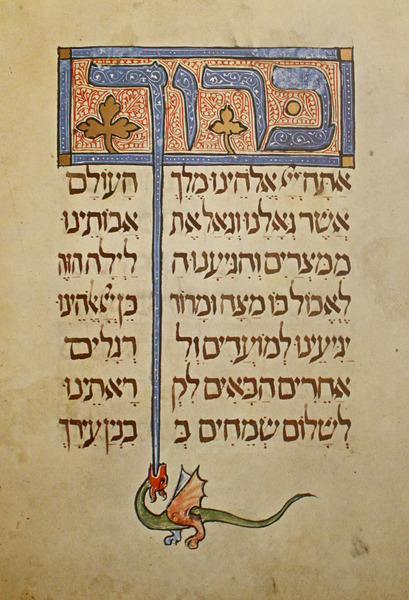 ברוך
אתה יי אלהינו מלך העולם
אשר גאלנו וגאל את אבותינו
ממצרים והגיענו הלילה הזה
לאכול בו מצה ומרור כן יי אלהינו
יגיענו למועדים ולרגלים
אחרים הבאים לקראתינו
לשלום שמחים בבנין עירך